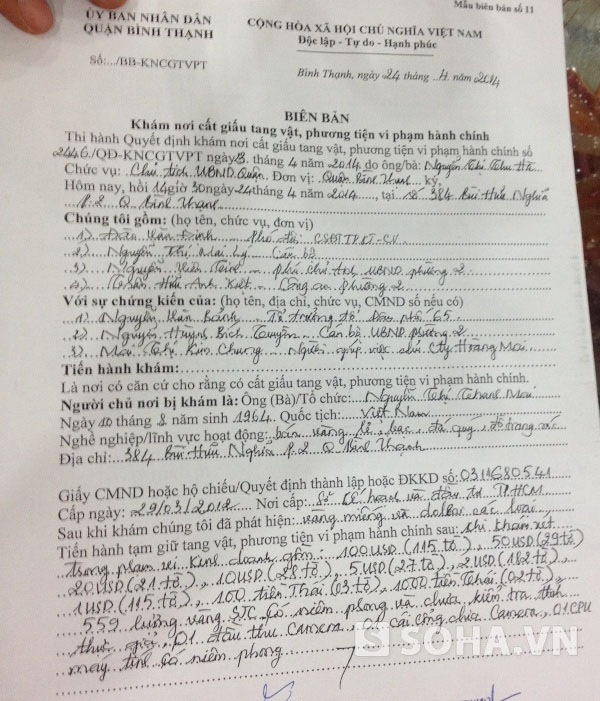 Mẫu biên bản số 11
ỦY BAN NHÂN DÂN
QUẬN BÌNH THẠNH
CỘNG HÒA XÃ HỘI CHỦ NGHĨA VIỆT NAM
Độc lập - Tự do - Hạnh phúc
Số:.../BB-KNCGTVPT
Bình Thạnh, ngày 24 tháng 4 năm 2014
BIÊN BẢN
Khám nơi cất giấu tang vật, phương tiện vi phạm hành chính
Thi hành Quyết định khám nơi cất giấu tang vật, phương tiện vi phạm hành chính số
2446/QĐ-KNCGTVPT ngày 23 tháng 4 năm 2014 do ông/bà: Nguyễn Thị Thu Hà
Chức vụ: Chủ tịch UBND Quận. Đơn vị: Quận Bình Thạnh ký,
Hôm nay, hồi 14 giờ 30 ngày 24 tháng 4 năm 2014, tại số 384 Bùi Hữu Nghĩa
P.2 Q Bình Thạnh
Chúng tôi gồm: (họ tên, chức vụ, đơn vị)
1) Văn Định phó đội CSĐTTP
2) Nguyễn Thị Mai Lý Cán bộ
3) Nguyễn phó chủ tịch UBND phường 2
4) Trần Hữu Anh Kiệt Công an phường 2
Với sự chứng kiến của: (họ tên, địa chỉ, chức vụ, CMND số nếu có)
1) Nguyễn Văn Bánh Tổ trưởng tổ dân phố 65
2) Nguyễn Huỳnh Bích Tuyền Cán bộ UBND phường 2
3) Mai Thị Kim Chung Người giúp việc chủ Cty Hoàng Mai
Tiến hành khám:
Là nơi có căn cứ cho rằng có cất giấu tang vật, phương tiện vi phạm hành chính.
Người chủ nơi bị khám là: Ông (Bà)/Tổ chức: Nguyễn Thị Thanh Mai
Ngày 10 tháng 8 năm sinh 1964. Quốc tịch: Việt Nam
Nghề nghiệp/lĩnh vực hoạt động: bán vàng sỉ, lẻ, bạc, đá quý, đồ trang sức
Địa chỉ: 384 Bùi Hữu Nghĩa P.2 Q Bình Thạnh
Giấy CMND hoặc hộ chiếu/Quyết định thành lập hoặc ĐKKD số: 0311680541
Cấp ngày: 29/03/2012 Nơi cấp: Sở Kế hoạch và đầu tư TPHCM
Sau khi khám chúng tôi đã phát hiện: vàng miếng và dollar các loại
Tiến hành tạm giữ tang vật, phương tiện vi phạm hành chính sau: khi khám xét
trong phạm vi kinh doanh gồm: 100USD (115 tờ), 50USD (29 tờ)
20USD (21 tờ), 10USD (28 tờ), 5USD (27 tờ), 2USD (162 tờ)
1USD (115 tờ), 100 tiền Thái (03 tờ), 1000 tiền Thái (02 tờ),
559 lượng vàng SJC có niêm phong và chưa kiểm tra tình
thực giả, 01 đầu thu camera, 01 cái cổng chia camera, 01 CPU
máy tính có niêm phong
SOHA.VN